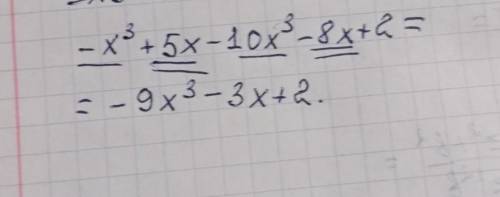 -x³ + 5x - 10x³ - 8x + 2 =
= - 9x³ - 3x + 2.